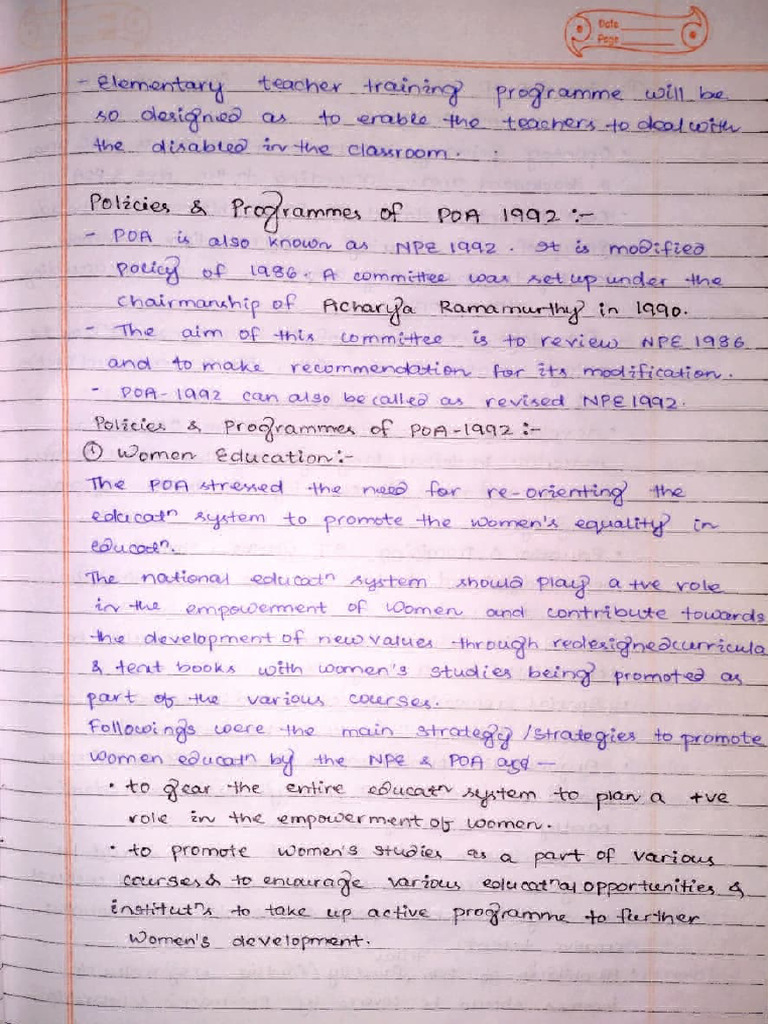 Date
Page
- Elementary teacher training programme will be
so designed as to enable the teachers to deal with
the disabled in the classroom.
Policies & Programmes of POA 1992 :-
- POA is also known as NPE 1992. It is modified
policy of 1986. A committee was set up under the
chairmanship of Acharya Ramamurthy in 1990.
- The aim of this committee is to review NPE 1986
and to make recommendation for its modification.
- POA-1992 can also be called as revised NPE 1992.
Policies & Programmes of POA-1992 :-
① Women Education :-
The POA stressed the need for re-orienting the
educatn system to promote the women's equality in
educatn.
The national educatn system should play a +ve role
in the empowerment of women and contribute towards
the development of new values through redesigned curricula
& text books with women's studies being promoted as
part of the various courses.
Followings were the main strategy/strategies to promote
women educatn by the NPE & POA —
• to gear the entire educatn system to plan a +ve
role in the empowerment of women.
• to promote women's studies as a part of various
courses & to encourage various educatnal opportunities &
institutns to take up active programme to further
women's development.